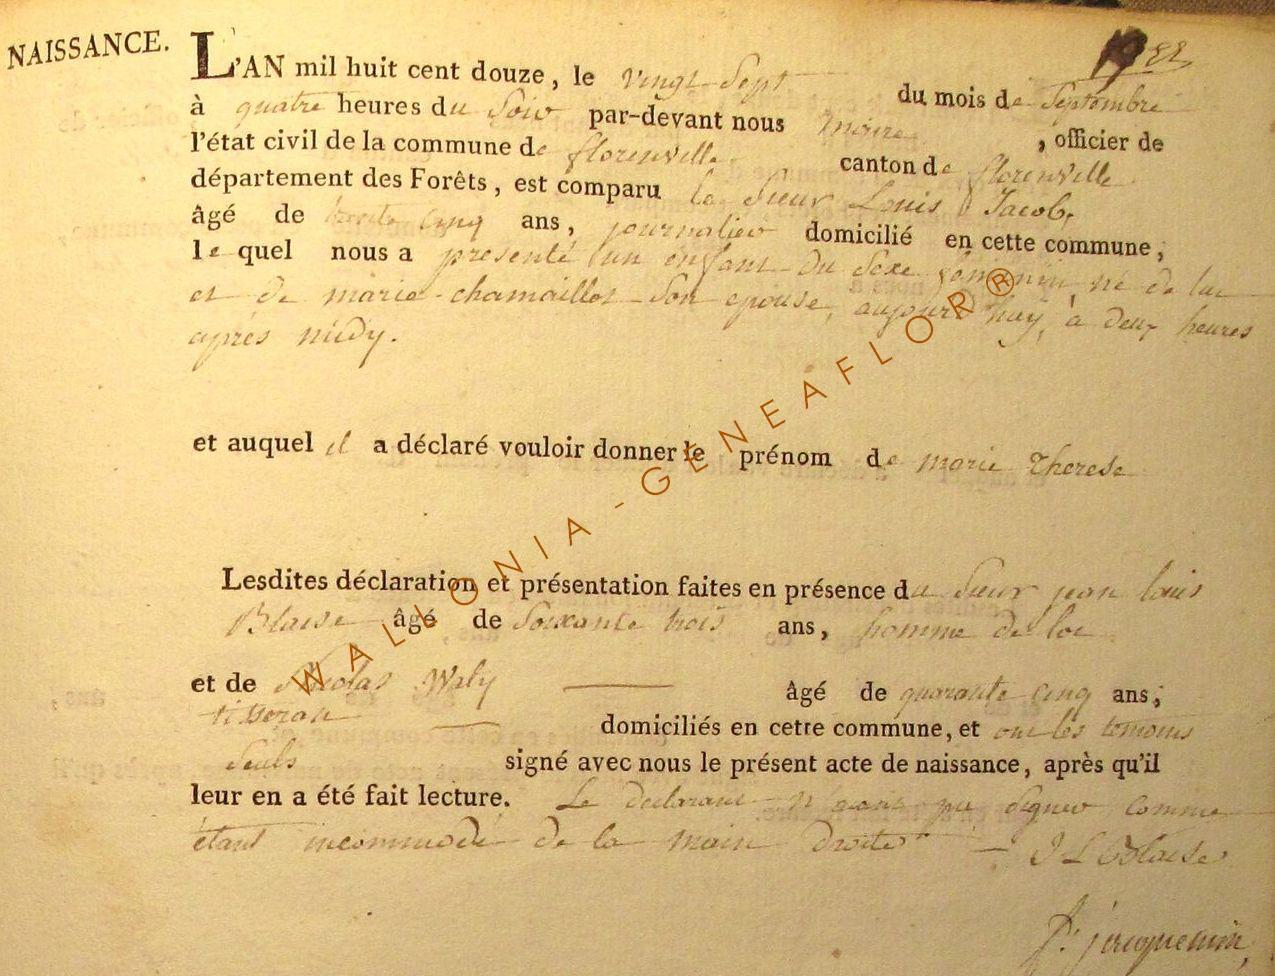 NAISSANCE.
L'AN mil huit cent douze, le vingt Sept du mois de Septembre
à quatre heures du Soir par-devant nous maire, officier de
l'état civil de la commune de florenville canton de florenville
département des Forêts, est comparu le Sieur Louis Jacob,
âgé de trente cinq ans, journalier domicilié en cette commune,
le quel nous a presenté un enfant du Sexe féminin, né de lui
et de marie chamaillot Son epouse, aujourd'huy, à deux heures
après midy.
et auquel il a déclaré vouloir donner le prénom de marie Therese
Lesdites déclaration et présentation faites en présence du Sieur jean louis
Blaise âgé de Soixante trois ans, homme de loi
et de Nicolas Waly âgé de quarante cinq ans,
tisseran domiciliés en cette commune, et ont les temoins
Seuls signé avec nous le présent acte de naissance, après qu'il
leur en a été fait lecture. Le declarant n'ayant pu Signer comme
étant incommodé de la main droite J L Blaise
jacqueminn
WALLONIA-GENEAFLOR®